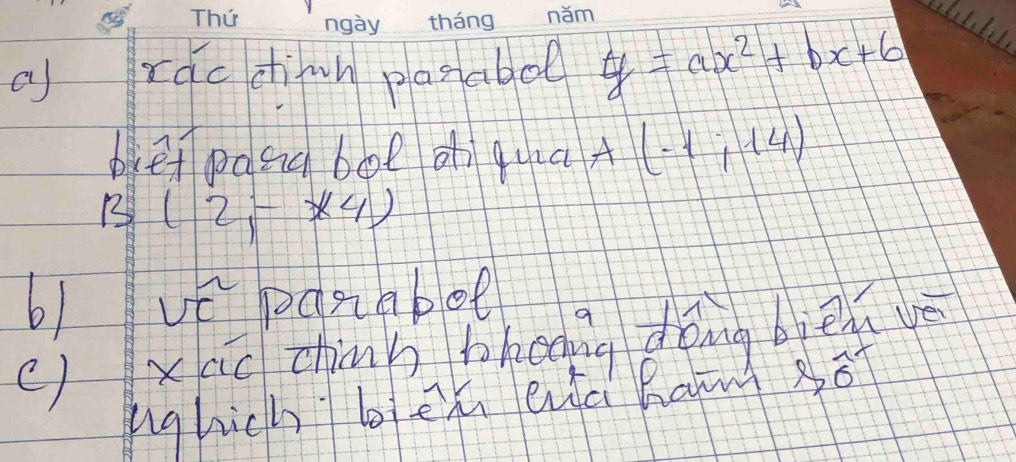 Thứ ngày tháng năm
a) xác định parabol y = ax² + bx + 6
biết parabol đi qua A (-1; 14)
B (2; - 4)
b) vẽ parabol
c) xác định khoảng đồng biến và
nghịch biến của hàm số